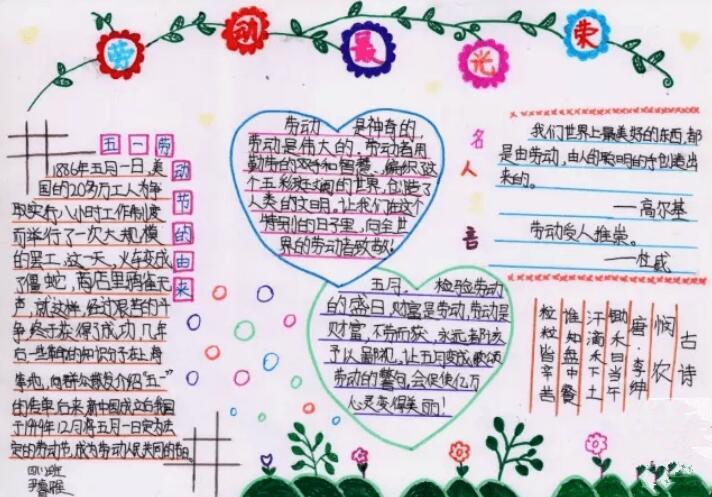 劳动最光荣
五一劳动节的由来
1886年五月一日,美
国的20多万工人为争
取实行八小时工作制度
而举行了一次大规模
的罢工,这一天,火车变成
了僵蛇,商店里鸦雀无
声,就这样,经过艰苦的斗
争,终于获得了成功,几年
后一些革命的知识分子在上海
等地,向群众散发介绍"五一"
的传单,后来,新中国成立后我国
于1949年12月将五月一日定为法
定的劳动节,成为劳动人民共同的节日。
劳动 是神奇的,
劳动是伟大的。劳动者用
勤劳的双手和智慧,编织了这
个五彩斑斓的世界,创造了
人类的文明。让我们在这个
特别的日子里,向全世
界的劳动者致敬!
五月、 检验劳动
的盛日,财富是劳动,劳动是
财富,不劳而获,永远都该
予以鄙视,让五月变成被颂
劳动的警句,会促使亿万
心灵变得美丽!
名人
音
我们世界上最美好的东西,都
是由劳动,由人的聪明的手创造出
来的。
——高尔基
劳动受人推崇。
——杜威
古诗
悯农
唐·李绅
锄禾日当午
汗滴禾下土
谁知盘中餐
粒粒皆辛苦